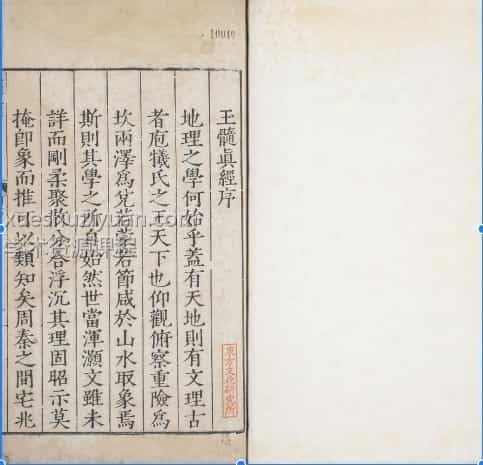 王髓眞經序
地理之學何始乎蓋有天地則有文理古
者庖犧氏之王天下也仰觀俯察重險爲
坎兩澤爲兌若蒙若節咸於山水取象焉
斯則其學之所自始然世當渾灝文雖未
詳而剛柔聚散合浮沉其理固昭示莫
掩卽象而推可以類知矣周秦之間宅兆